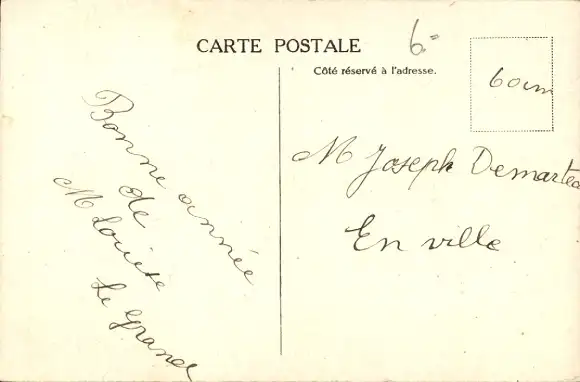 CARTE POSTALE
6=
Côté réservé à l'adresse.
60cm
Bonne année
de
M Louise
Le Grand
M Joseph Demartea
En ville